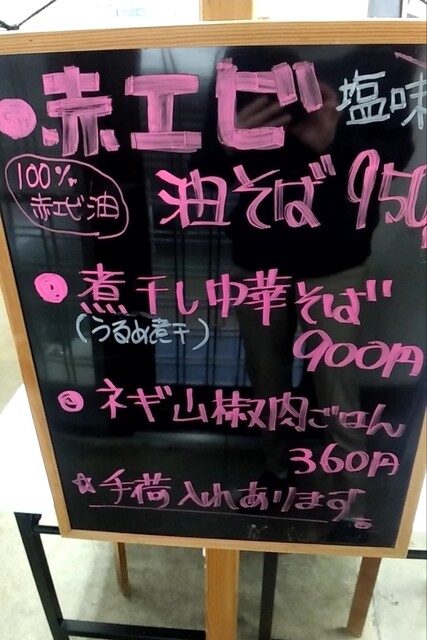 ●赤エビ 塩味
100% 赤エビ油
油そば 950
●煮干し中華そば
(うるめ煮干)
900円
●ネギ山椒肉ごはん
360円
☆手荷入れあります。